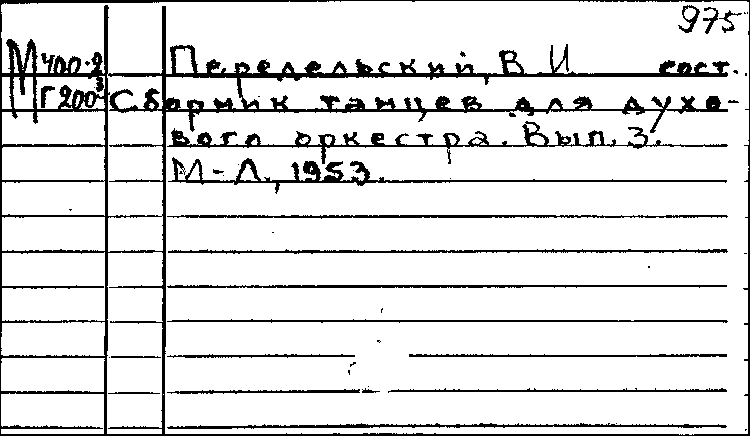 975
М 400-2 Передельский, В. И. сост.
М Г 200³ Сборник танцев для духо-
вого оркестра. Вып. 3.
М-Л., 1953.